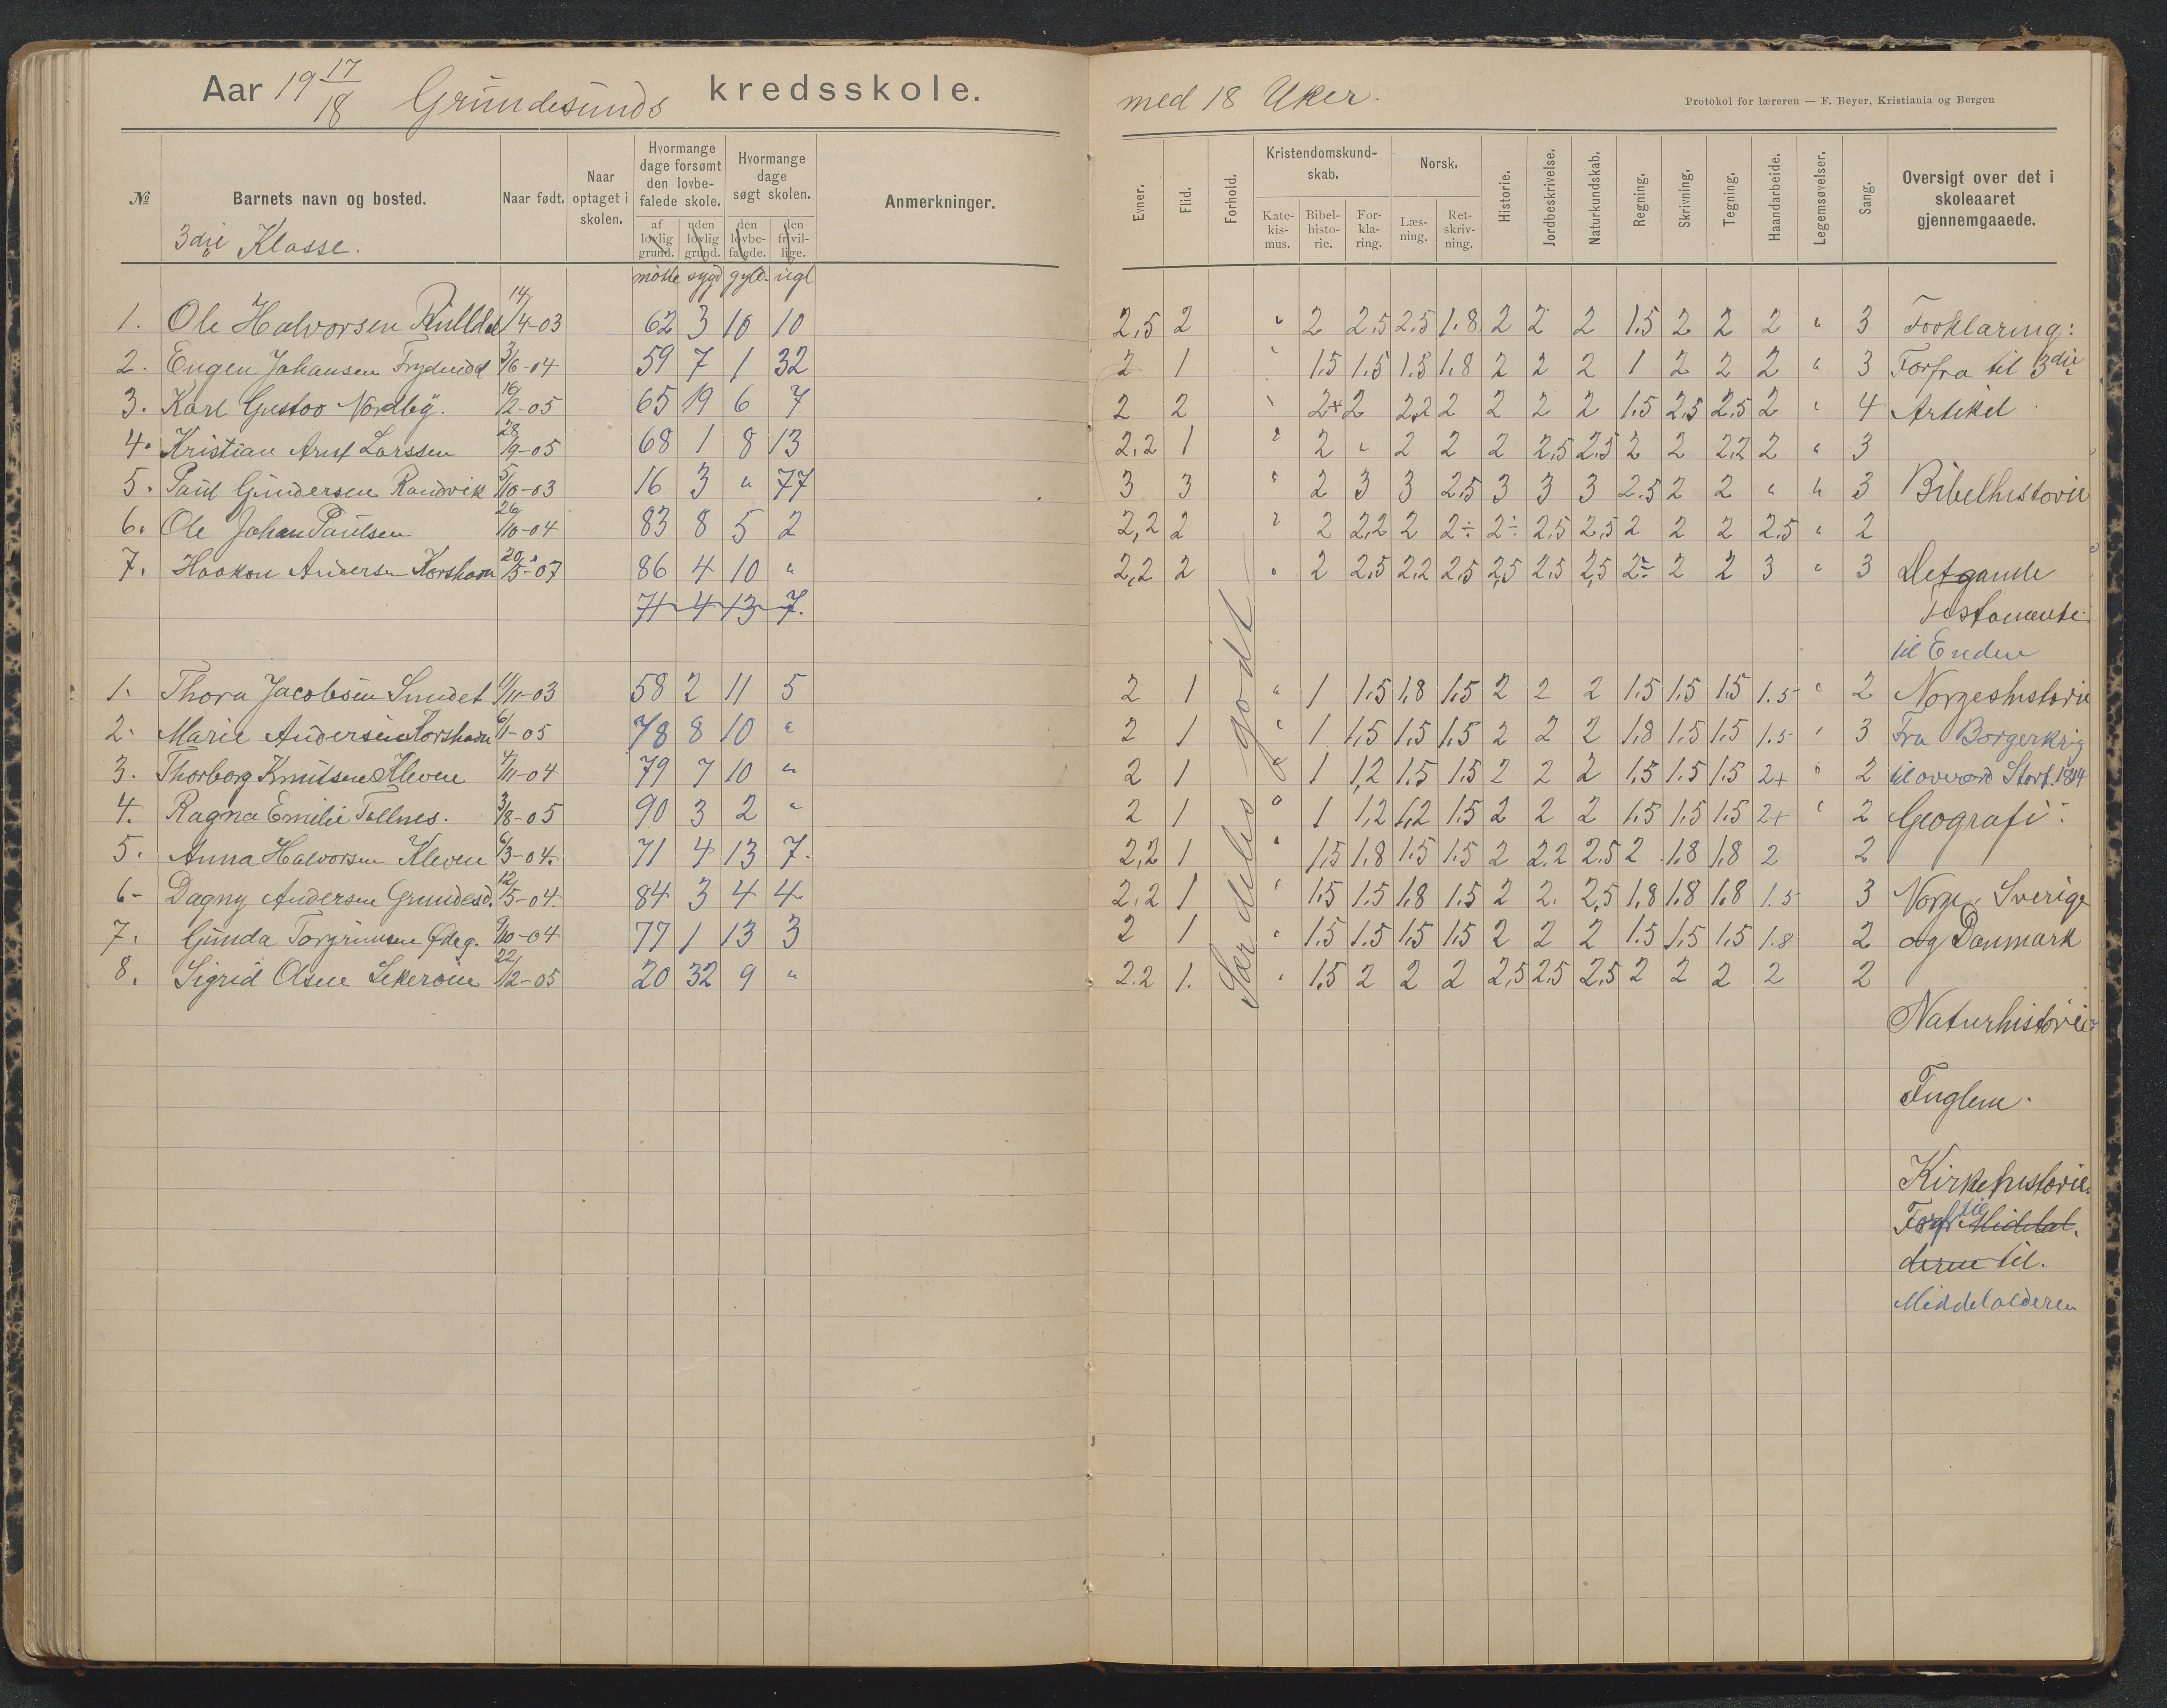 Aar 19 17/18 Grundesunds kredsskole.
med 18 Uker.
Protokol for læreren — F. Beyer, Kristiania og Bergen
№ Barnets navn og bosted. Naar født. Naar optaget i skolen. Hvormange dage forsømt den lovbefalede skole. Hvormange dage søgt skolen. Anmerkninger.
af lovlig grund. uden lovlig grund. den lovbefalede. den frivillige.
Evner. Flid. Forhold. Kristendomskundskab. Norsk. Historie. Jordbeskrivelse. Naturkundskab. Regning. Skrivning. Tegning. Haandarbeide. Legemsøvelser. Sang. Oversigt over det i skoleaaret gjennemgaaede.
Katekismus. Bibelhistorie. Forklaring. Læsning. Retskrivning.
3die Klasse.
møtte sygd gyld. ugl
1. Ole Halvorsen 14/4-03 62 3 10 10 2,5 2 " 2 2.5 2.5 1.8 2 2 2 1.5 2 2 2 " 3 Forklaring:
2. Eugen Johansen 3/6-04 59 7 1 32 2 1 " 1.5 1.5 1.5 1.8 2 2 2 1 2 2 2 " 3 Forfra til 3die
3. Karl Gustav Nordby. 16/2-05 65 19 6 7 2 2 " 2+ 2 2,2 2 2 2 2 1.5 2.5 2.5 2 " 4 Artikel
4. Kristian Arnt Larssen 28/9-05 68 1 8 13 2,2 1 " 2 " 2 2 2 2,5 2.5 2 2 2.2 2 " 3
5. Paul Gundersen Randvik 5/10-03 16 3 " 77 3 3 " 2 3 3 2.5 3 3 3 2.5 2 2 " " 3 Bibelhistorie
6. Ole Johan Paulsen 26/10-04 83 8 5 2 2,2 2 " 2 2,2 2 2÷ 2÷ 2,5 2,5 2 2 2 2,5 " 2
7. Haakon Andersen Korshavn 20/5-07 86 4 10 " 2,2 2 " 2 2.5 2.2 2.5 2,5 2.5 2,5 2÷ 2 2 3 " 3 Det gamle
71 4 13 7. testamente
til Enden
1. Thora Jacobsen Sundet 11/11-03 58 2 11 5 2 1 " 1 1.5 1.8 1.5 2 2 2 1.5 1.5 1.5 1.5 " 2 Norgeshistorie
2. Marie Andersen Korshavn 6/1-05 78 8 10 " 2 1 " 1 1,5 1.5 1.5 2 2 2 1.8 1.5 1.5 1.5 " 3 Fra Borgerkrig
3. Thorborg Knutsen Kleven 4/11-04 79 7 10 " 2 1 " 1 1,2 1.5 1.5 2 2 2 1.5 1.5 1.5 2+ " 2 til overord Stort. 1814
4. Ragna Emilie Tallnes. 3/8-05 90 3 2 " 2 1 " 1 1,2 1,2 1.5 2 2 2 1.5 1.5 1.5 2+ " 2 Geografi:
5. Anna Halvorsen Kleven 6/3-04. 71 4 13 7. 2,2 1 " 1.5 1.8 1.5 1.5 2 2.2 2.5 2 1.8 1.8 2 2
6- Dagny Andersen Grundesd. 12/5-04. 84 3 4 4 2.2 1 " 1.5 1.5 1.8 1.5 2 2. 2,5 1.8 1.8 1.8 1.5 3 Norge. Sverige
7. Gunda Torgrimsen Ødeg. 9/10-04 77 1 13 3 2 1 " 1.5 1.5 1.5 1.5 2 2 2 1.5 1.5 1.5 1.8 2 og Danmark
8. Sigrid Olsen Sekerøien 22/12-05 20 32 9 " 2.2 1. " 1.5 2 2 2 2,5 2.5 2.5 2 2 2 2 2
Særdeles godt
Naturhistorie
Fuglene.
Kirkehistorie.
Forfr til Middelal.
derne til.
Middelalderen